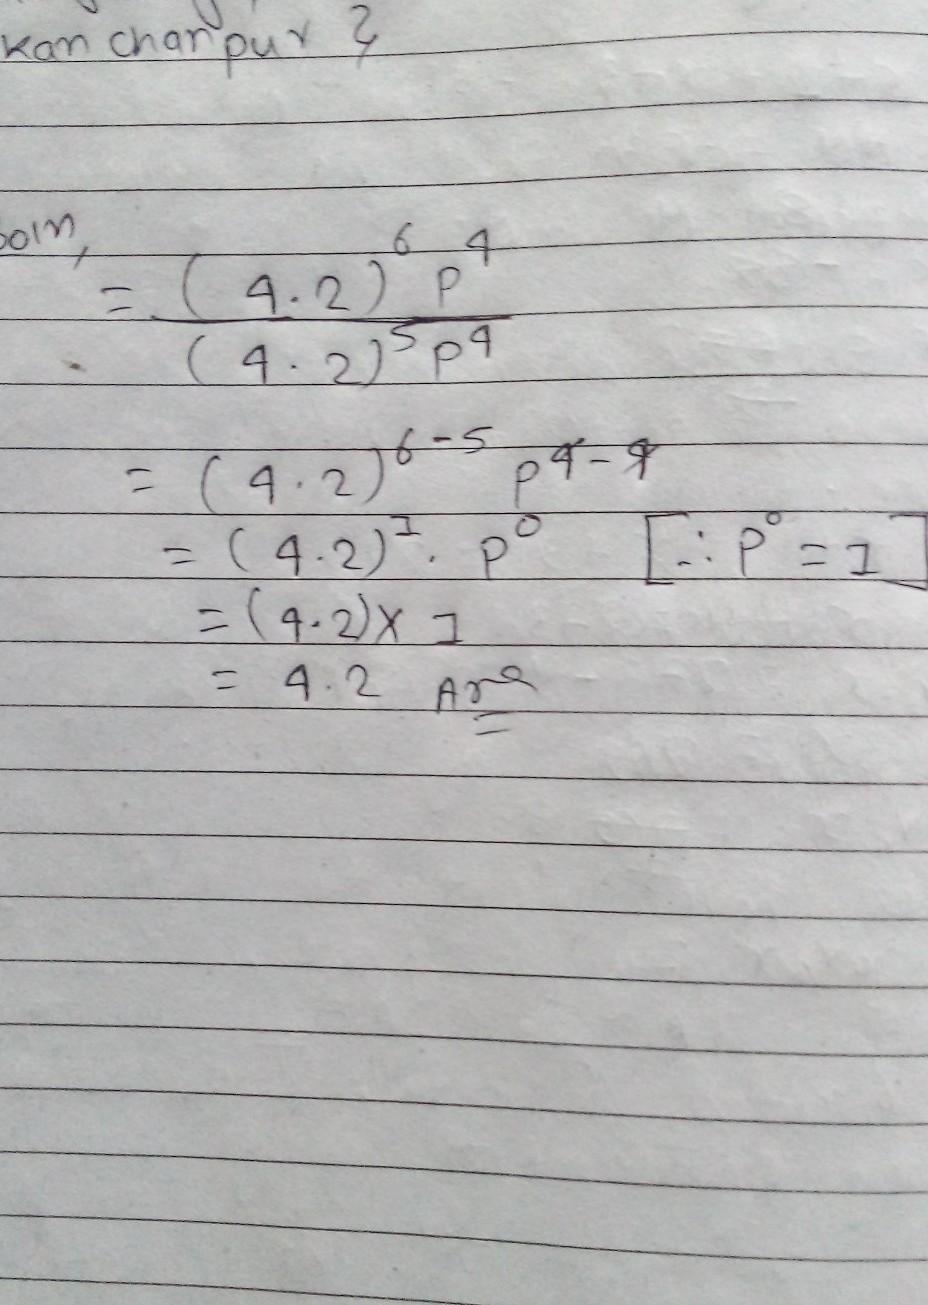 kanchanpur ?
soln,
= (4.2)⁶ p⁴
(4.2)⁵ p⁴
= (4.2)⁶⁻⁵ p⁴⁻⁴
= (4.2)¹ . p⁰ [∴ p⁰ = 1]
= (4.2) x 1
= 4.2 Ans